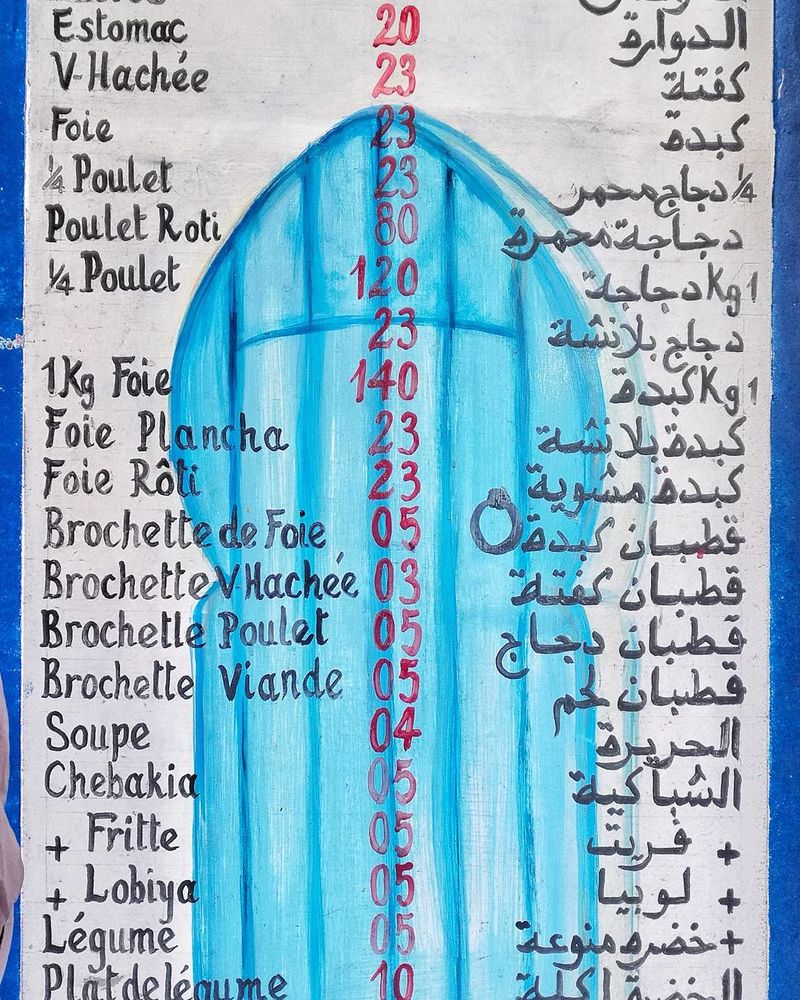 Estomac 20 الدوارة
V-Hachée 23 كفتة
Foie 23 كبدة
¼ Poulet 23 ¼ دجاج محمر
Poulet Roti 80 دجاجة محمرة
¼ Poulet 120 1 Kg دجاجة
23 دجاج بلانشة
1Kg Foie 140 1 Kg كبدة
Foie Plancha 23 كبدة بلانشة
Foie Rôti 23 كبدة مشوية
Brochette de Foie 05 قطبان كبدة
Brochette V Hachée 03 قطبان كفتة
Brochette Poulet 05 قطبان دجاج
Brochette Viande 05 قطبان لحم
Soupe 04 الحريرة
Chebakia 05 الشباكية
+ Fritte 05 + فريت
+ Lobiya 05 + لوبيا
Légume 05 + خضرة منوعة
Plat de légume 10